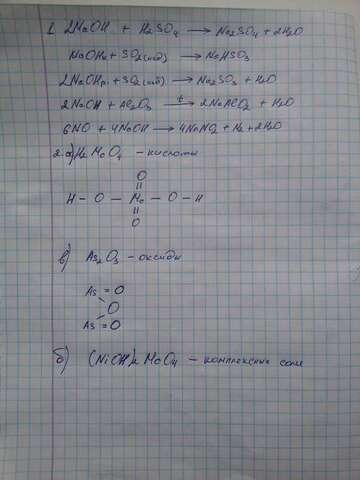 1. 2NaOH + H2SO4 → Na2SO4 + 2H2O
NaOH + SO2(изб) → NaHSO3
2NaOH + SO2 → Na2SO3 + H2O
2NaOH + Al2O3 →t 2NaAlO2 + H2O
6NO + 4NaOH → 4NaNO2 + H2O
2. а) H2MoO4 – кислоты
O
||
H – O – Mo – O – H
||
O
в) As2O3 – оксиды
As = O
O
As = O
б) (NiOH)2MoO4 – комплексные соли